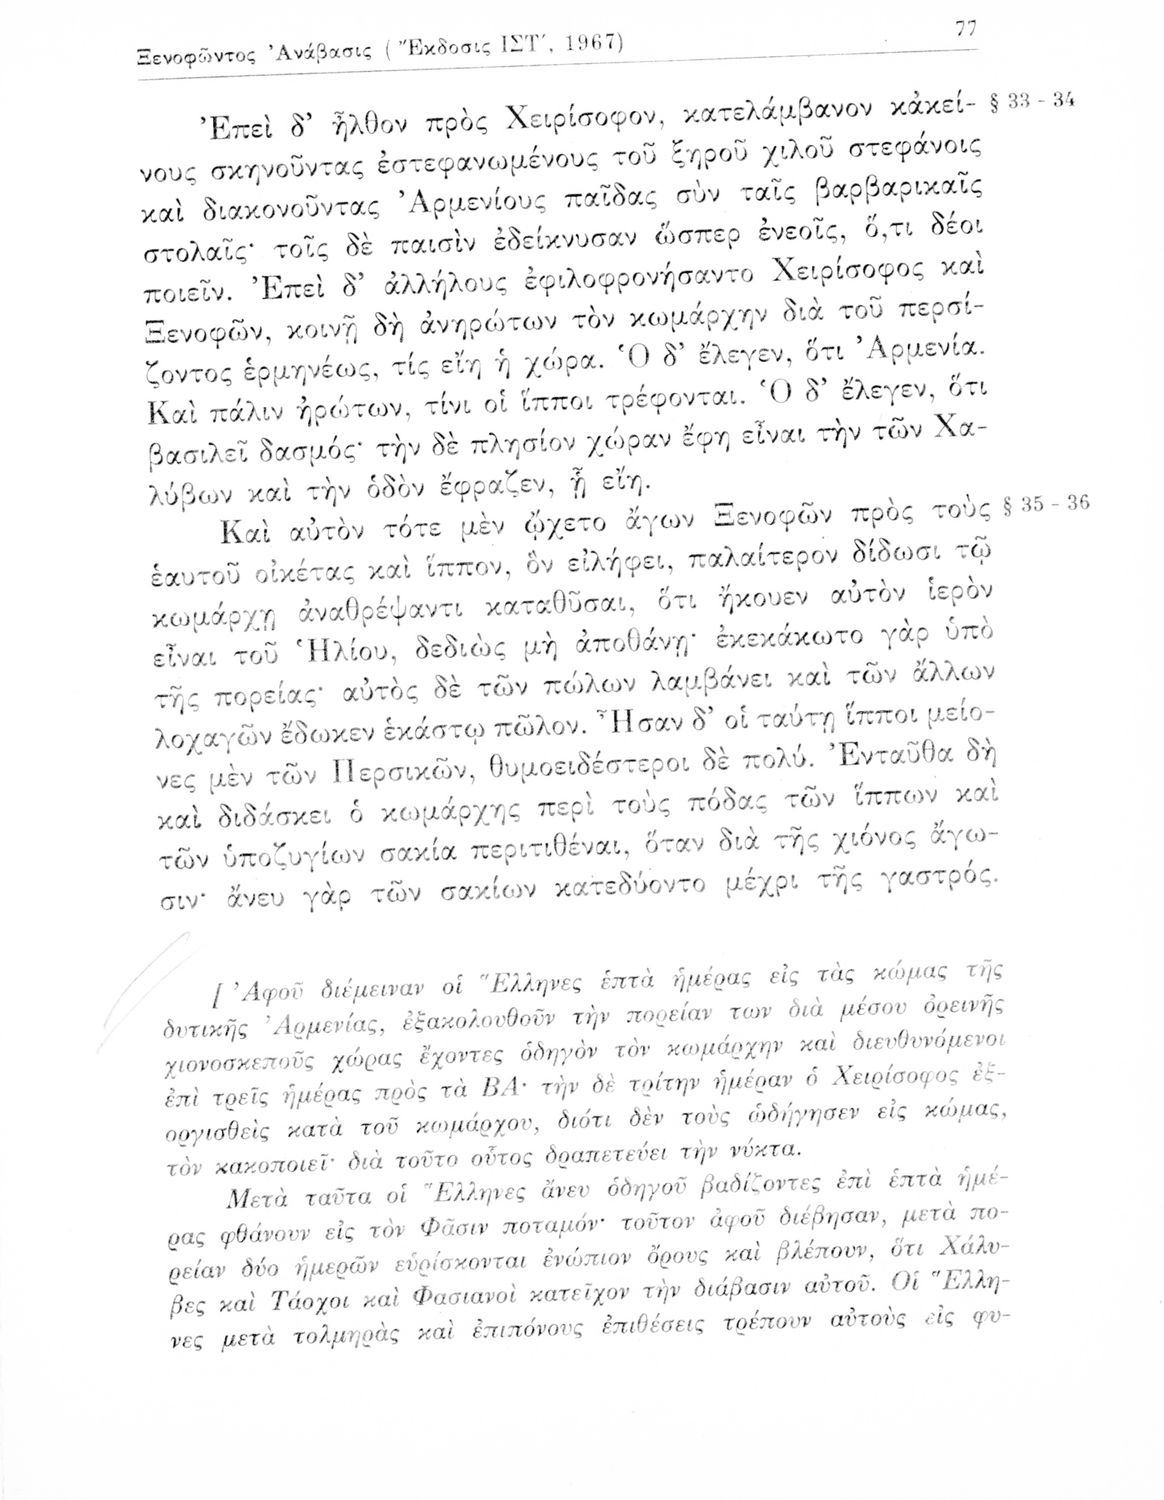 Ξενοφῶντος Ἀνάβασις ( Ἔκδοσις ΙΣΤ΄, 1967)
77
Ἐπεὶ δ’ ἦλθον πρὸς Χειρίσοφον, κατελάμβανον κἀκεί-
§ 33 - 34
νους σκηνοῦντας ἐστεφανωμένους τοῦ ξηροῦ χιλοῦ στεφάνοις
καὶ διακονοῦντας Ἀρμενίους παῖδας σὺν ταῖς βαρβαρικαῖς
στολαῖς· τοῖς δὲ παισὶν ἐδείκνυσαν ὥσπερ ἐνεοῖς, ὅ,τι δέοι
ποιεῖν. Ἐπεὶ δ’ ἀλλήλους ἐφιλοφρονήσαντο Χειρίσοφος καὶ
Ξενοφῶν, κοινῇ δὴ ἀνηρώτων τὸν κωμάρχην διὰ τοῦ περσί-
ζοντος ἑρμηνέως, τίς εἴη ἡ χώρα. Ὁ δ’ ἔλεγεν, ὅτι Ἀρμενία.
Καὶ πάλιν ἠρώτων, τίνι οἱ ἵπποι τρέφονται. Ὁ δ’ ἔλεγεν, ὅτι
βασιλεῖ δασμός· τὴν δὲ πλησίον χώραν ἔφη εἶναι τὴν τῶν Χα-
λύβων καὶ τὴν ὁδὸν ἔφραζεν, ᾗ εἴη.
Καὶ αὐτὸν τότε μὲν ᾤχετο ἄγων Ξενοφῶν πρὸς τοὺς
§ 35 - 36
ἑαυτοῦ οἰκέτας καὶ ἵππον, ὃν εἰλήφει, παλαίτερον δίδωσι τῷ
κωμάρχῃ ἀναθρέψαντι καταθῦσαι, ὅτι ἤκουεν αὐτὸν ἱερὸν
εἶναι τοῦ Ἡλίου, δεδιὼς μὴ ἀποθάνῃ· ἐκεκάκωτο γὰρ ὑπὸ
τῆς πορείας· αὐτὸς δὲ τῶν πώλων λαμβάνει καὶ τῶν ἄλλων
λοχαγῶν ἔδωκεν ἑκάστῳ πῶλον. Ἦσαν δ’ οἱ ταύτῃ ἵπποι μείο-
νες μὲν τῶν Περσικῶν, θυμοειδέστεροι δὲ πολύ. Ἐνταῦθα δὴ
καὶ διδάσκει ὁ κωμάρχης περὶ τοὺς πόδας τῶν ἵππων καὶ
τῶν ὑποζυγίων σακία περιτιθέναι, ὅταν διὰ τῆς χιόνος ἄγω-
σιν· ἄνευ γὰρ τῶν σακίων κατεδύοντο μέχρι τῆς γαστρός.
[ Ἀφοῦ διέμειναν οἱ Ἕλληνες ἑπτὰ ἡμέρας εἰς τὰς κώμας τῆς
δυτικῆς Ἀρμενίας, ἐξακολουθοῦν τὴν πορείαν των διὰ μέσου ὀρεινῆς
χιονοσκεποῦς χώρας ἔχοντες ὁδηγὸν τὸν κωμάρχην καὶ διευθυνόμενοι
ἐπὶ τρεῖς ἡμέρας πρὸς τὰ ΒΑ· τὴν δὲ τρίτην ἡμέραν ὁ Χειρίσοφος ἐξ-
οργισθεὶς κατὰ τοῦ κωμάρχου, διότι δὲν τοὺς ὡδήγησεν εἰς κώμας,
τὸν κακοποιεῖ· διὰ τοῦτο οὗτος δραπετεύει τὴν νύκτα.
Μετὰ ταῦτα οἱ Ἕλληνες ἄνευ ὁδηγοῦ βαδίζοντες ἐπὶ ἑπτὰ ἡμέ-
ρας φθάνουν εἰς τὸν Φᾶσιν ποταμόν· τοῦτον ἀφοῦ διέβησαν, μετὰ πο-
ρείαν δύο ἡμερῶν εὑρίσκονται ἐνώπιον ὄρους καὶ βλέπουν, ὅτι Χάλυ-
βες καὶ Τάοχοι καὶ Φασιανοὶ κατεῖχον τὴν διάβασιν αὐτοῦ. Οἱ Ἕλλη-
νες μετὰ τολμηρὰς καὶ ἐπιπόνους ἐπιθέσεις τρέπουν αὐτοὺς εἰς φυ-